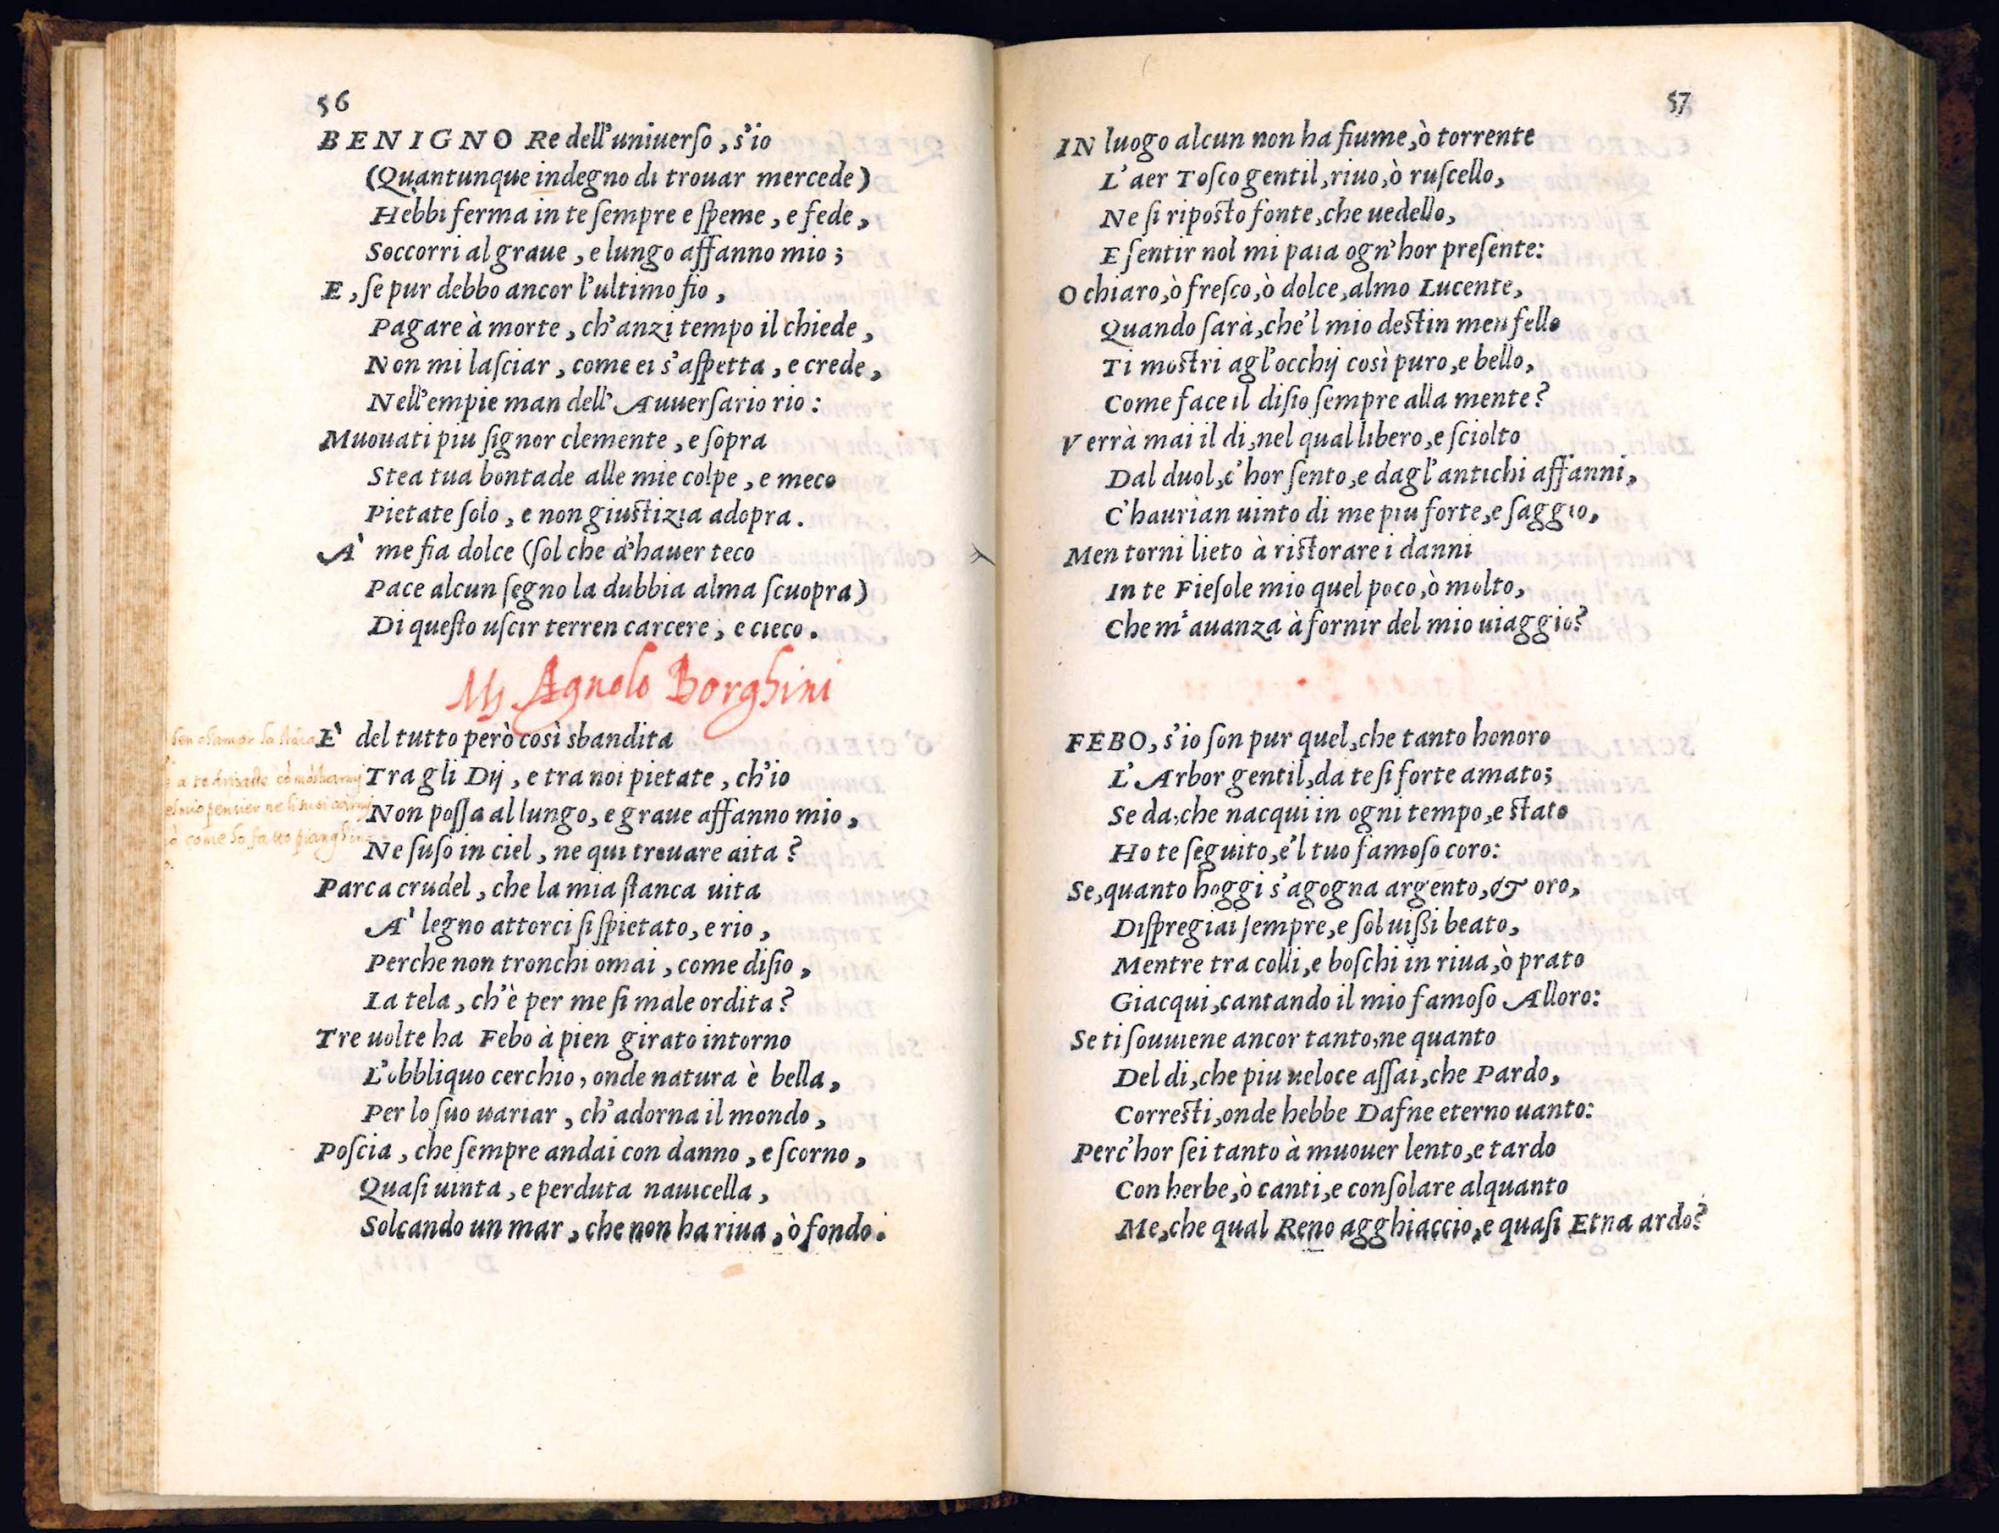 56
BENIGNO Re dell'uniuerſo, s'io
(Quantunque indegno di trouar mercede)
Hebbi ferma in te ſempre e ſpeme, e fede,
Soccorri al graue, e lungo affanno mio;
E, ſe pur debbo ancor l'ultimo fio,
Pagare à morte, ch'anzi tempo il chiede,
Non mi laſciar, come ei s'aſpetta, e crede,
Nell'empie man dell'Auuerſario rio:
Muouati piu ſignor clemente, e ſopra
Stea tua bontade alle mie colpe, e meco
Pietate ſolo, e non giuſtizia adopra.
A' me fia dolce (ſol che d'hauer teco
Pace alcun ſegno la dubbia alma ſcuopra)
Di queſto uſcir terren carcere, e cieco.
Agnolo Borghini
E' del tutto però così sbandita
Tra gli Dij, e tra noi pietate, ch'io
Non poſſa al lungo, e graue affanno mio,
Ne ſuſo in ciel, ne qui trouare aita?
Parca crudel, che la mia ſtanca uita
A' legno attorci ſi ſpietato, e rio,
Perche non tronchi omai, come diſio,
La tela, ch'è per me ſi male ordita?
Tre uolte ha Febo à pien girato intorno
L'obbliquo cerchio, onde natura è bella,
Per lo ſuo uariar, ch'adorna il mondo,
Poſcia, che ſempre andai con danno, e ſcorno,
Quaſi uinta, e perduta nauicella,
Solcando un mar, che non ha riua, ò fondo.
57
IN luogo alcun non ha fiume, ò torrente
L'aer Toſco gentil, riuo, ò ruſcello,
Ne ſi ripoſto fonte, che uedello,
E ſentir nol mi paia ogn'hor preſente:
O chiaro, ò freſco, ò dolce, almo Lucente,
Quando ſarà, che'l mio deſtin men fello
Ti moſtri agl'occhij così puro, e bello,
Come face il diſio ſempre alla mente?
Verrà mai il di, nel qual libero, e ſciolto
Dal duol, c'hor ſento, e dagl'antichi affanni,
C'haurian uinto di me piu forte, e ſaggio,
Men torni lieto à riſtorare i danni
In te Fieſole mio quel poco, ò molto,
Che m'auanza à fornir del mio uiaggio?
FEBO, s'io ſon pur quel, che tanto honoro
L'Arbor gentil, da te ſi forte amato;
Se da, che nacqui in ogni tempo, e ſtato
Ho te ſeguito, e'l tuo famoſo coro:
Se, quanto hoggi s'agogna argento, & oro,
Diſpregiai ſempre, e ſol uißi beato,
Mentre tra colli, e boſchi in riua, ò prato
Giacqui, cantando il mio famoſo Alloro:
Se ti ſouuiene ancor tanto, ne quanto
Del di, che piu ueloce aſſai, che Pardo,
Correſti, onde hebbe Dafne eterno uanto:
Perc'hor ſei tanto à muouer lento, e tardo
Con herbe, ò canti, e conſolare alquanto
Me, che qual Reno agghiaccio, e quaſi Etna ardo?